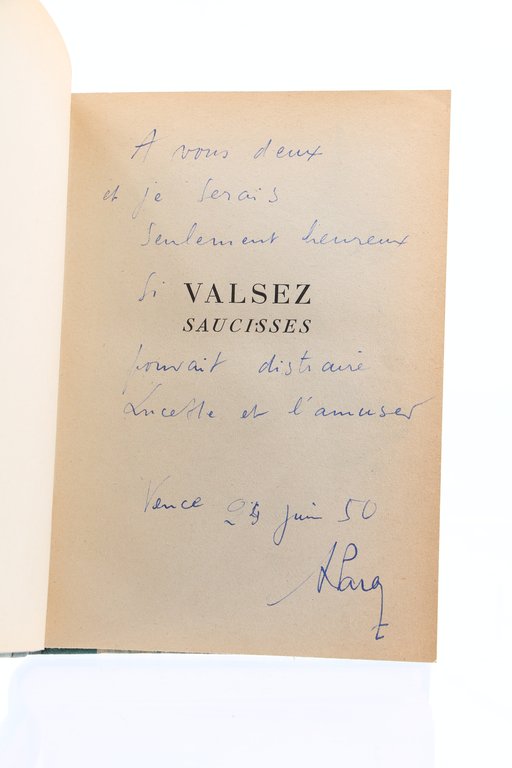 A vous deux
et je serais
seulement heureux
si VALSEZ
SAUCISSES
pouvait distraire
Lucette et l'amuser
Vence juin 50